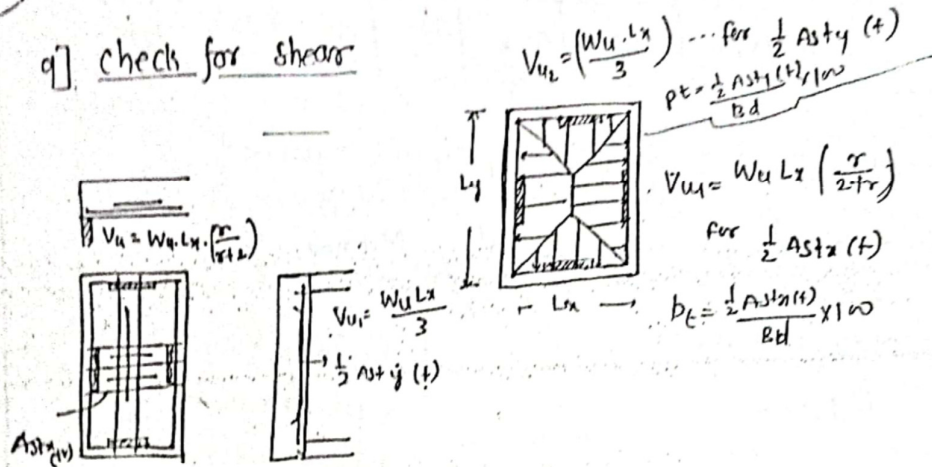 9] Check for shear
Vu2 = (Wu.Lx / 3) ... for 1/2 Asty (+)
pt = 1/2 Asty(+) / Bd × 100
Ly
Lx
Vu1 = Wu Lx (r / 2+r)
for 1/2 Astx (+)
pt = 1/2 Astx(+) / Bd × 100
Vu = Wu.Lx.(r / r+2)
Vu1 = Wu Lx / 3
→ 1/2 Asty (+)
Astx(+)